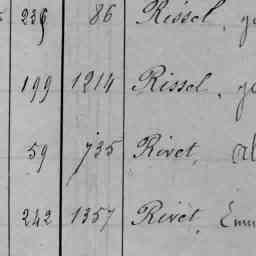 239 86 Rissel,
199 1214 Rissel,
59 735 Rivet,
242 1357 Rivet,